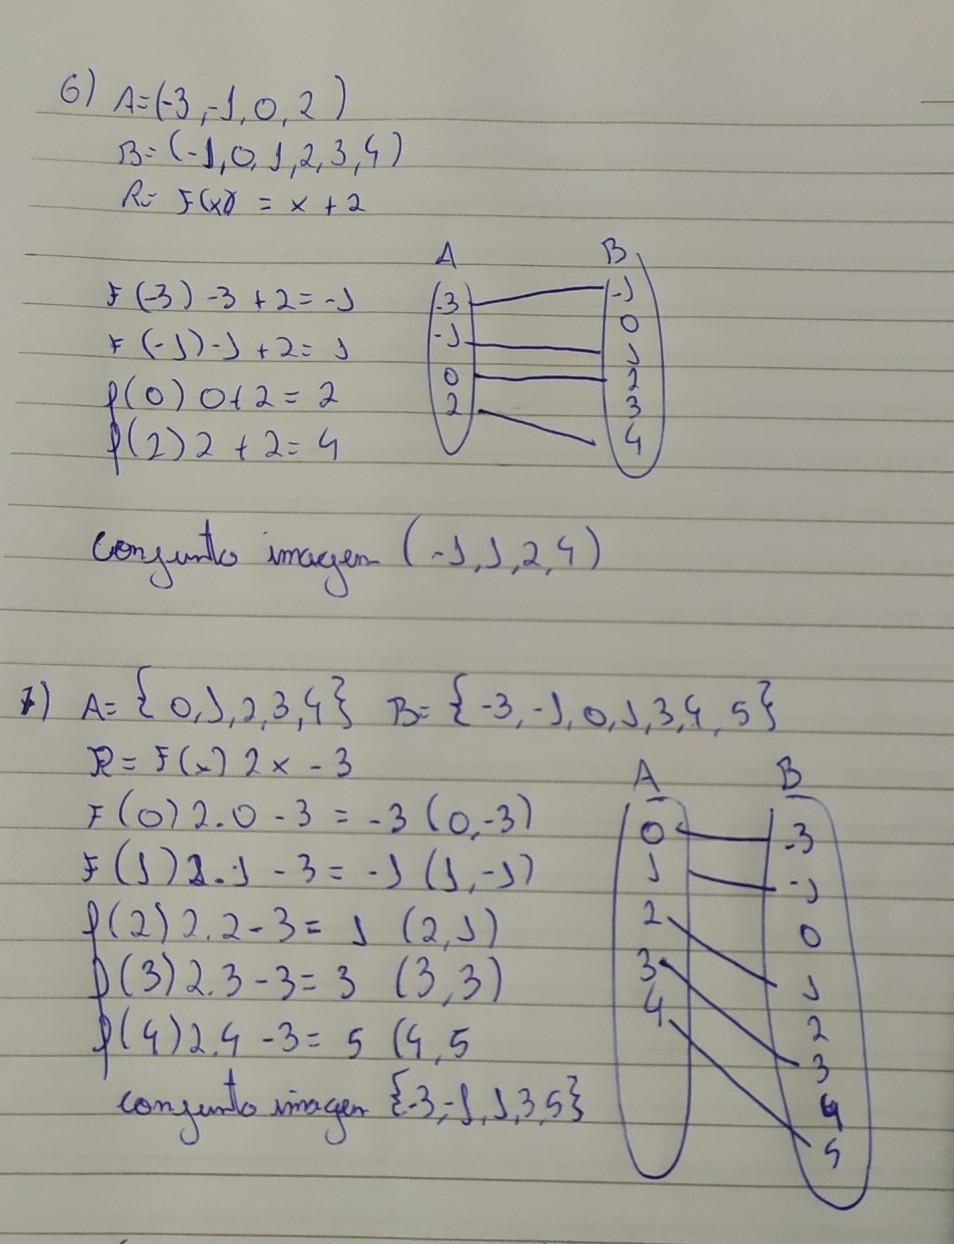 6) A=(-3,-1,0,2)
B=(-1,0,1,2,3,4)
R= F(x) = x + 2
A B
F(-3) -3 + 2 = -1
F(-1) -1 + 2 = 1
f(0) 0+2 = 2
f(2) 2 + 2 = 4
-3
-1
0
2
-1
0
1
2
3
4
conjunto imagem (-1,1,2,4)
7) A= {0,1,2,3,4} B= {-3,-1,0,1,3,4,5}
R= F(x) 2x - 3
A B
F(0) 2.0 - 3 = -3 (0,-3)
F(1) 2.1 - 3 = -1 (1,-1)
f(2) 2.2 - 3 = 1 (2,1)
f(3) 2.3 - 3 = 3 (3,3)
f(4) 2.4 - 3 = 5 (4,5
conjunto imagem {-3,-1,1,3,5}
0
1
2
3
4
-3
-1
0
1
2
3
4
5